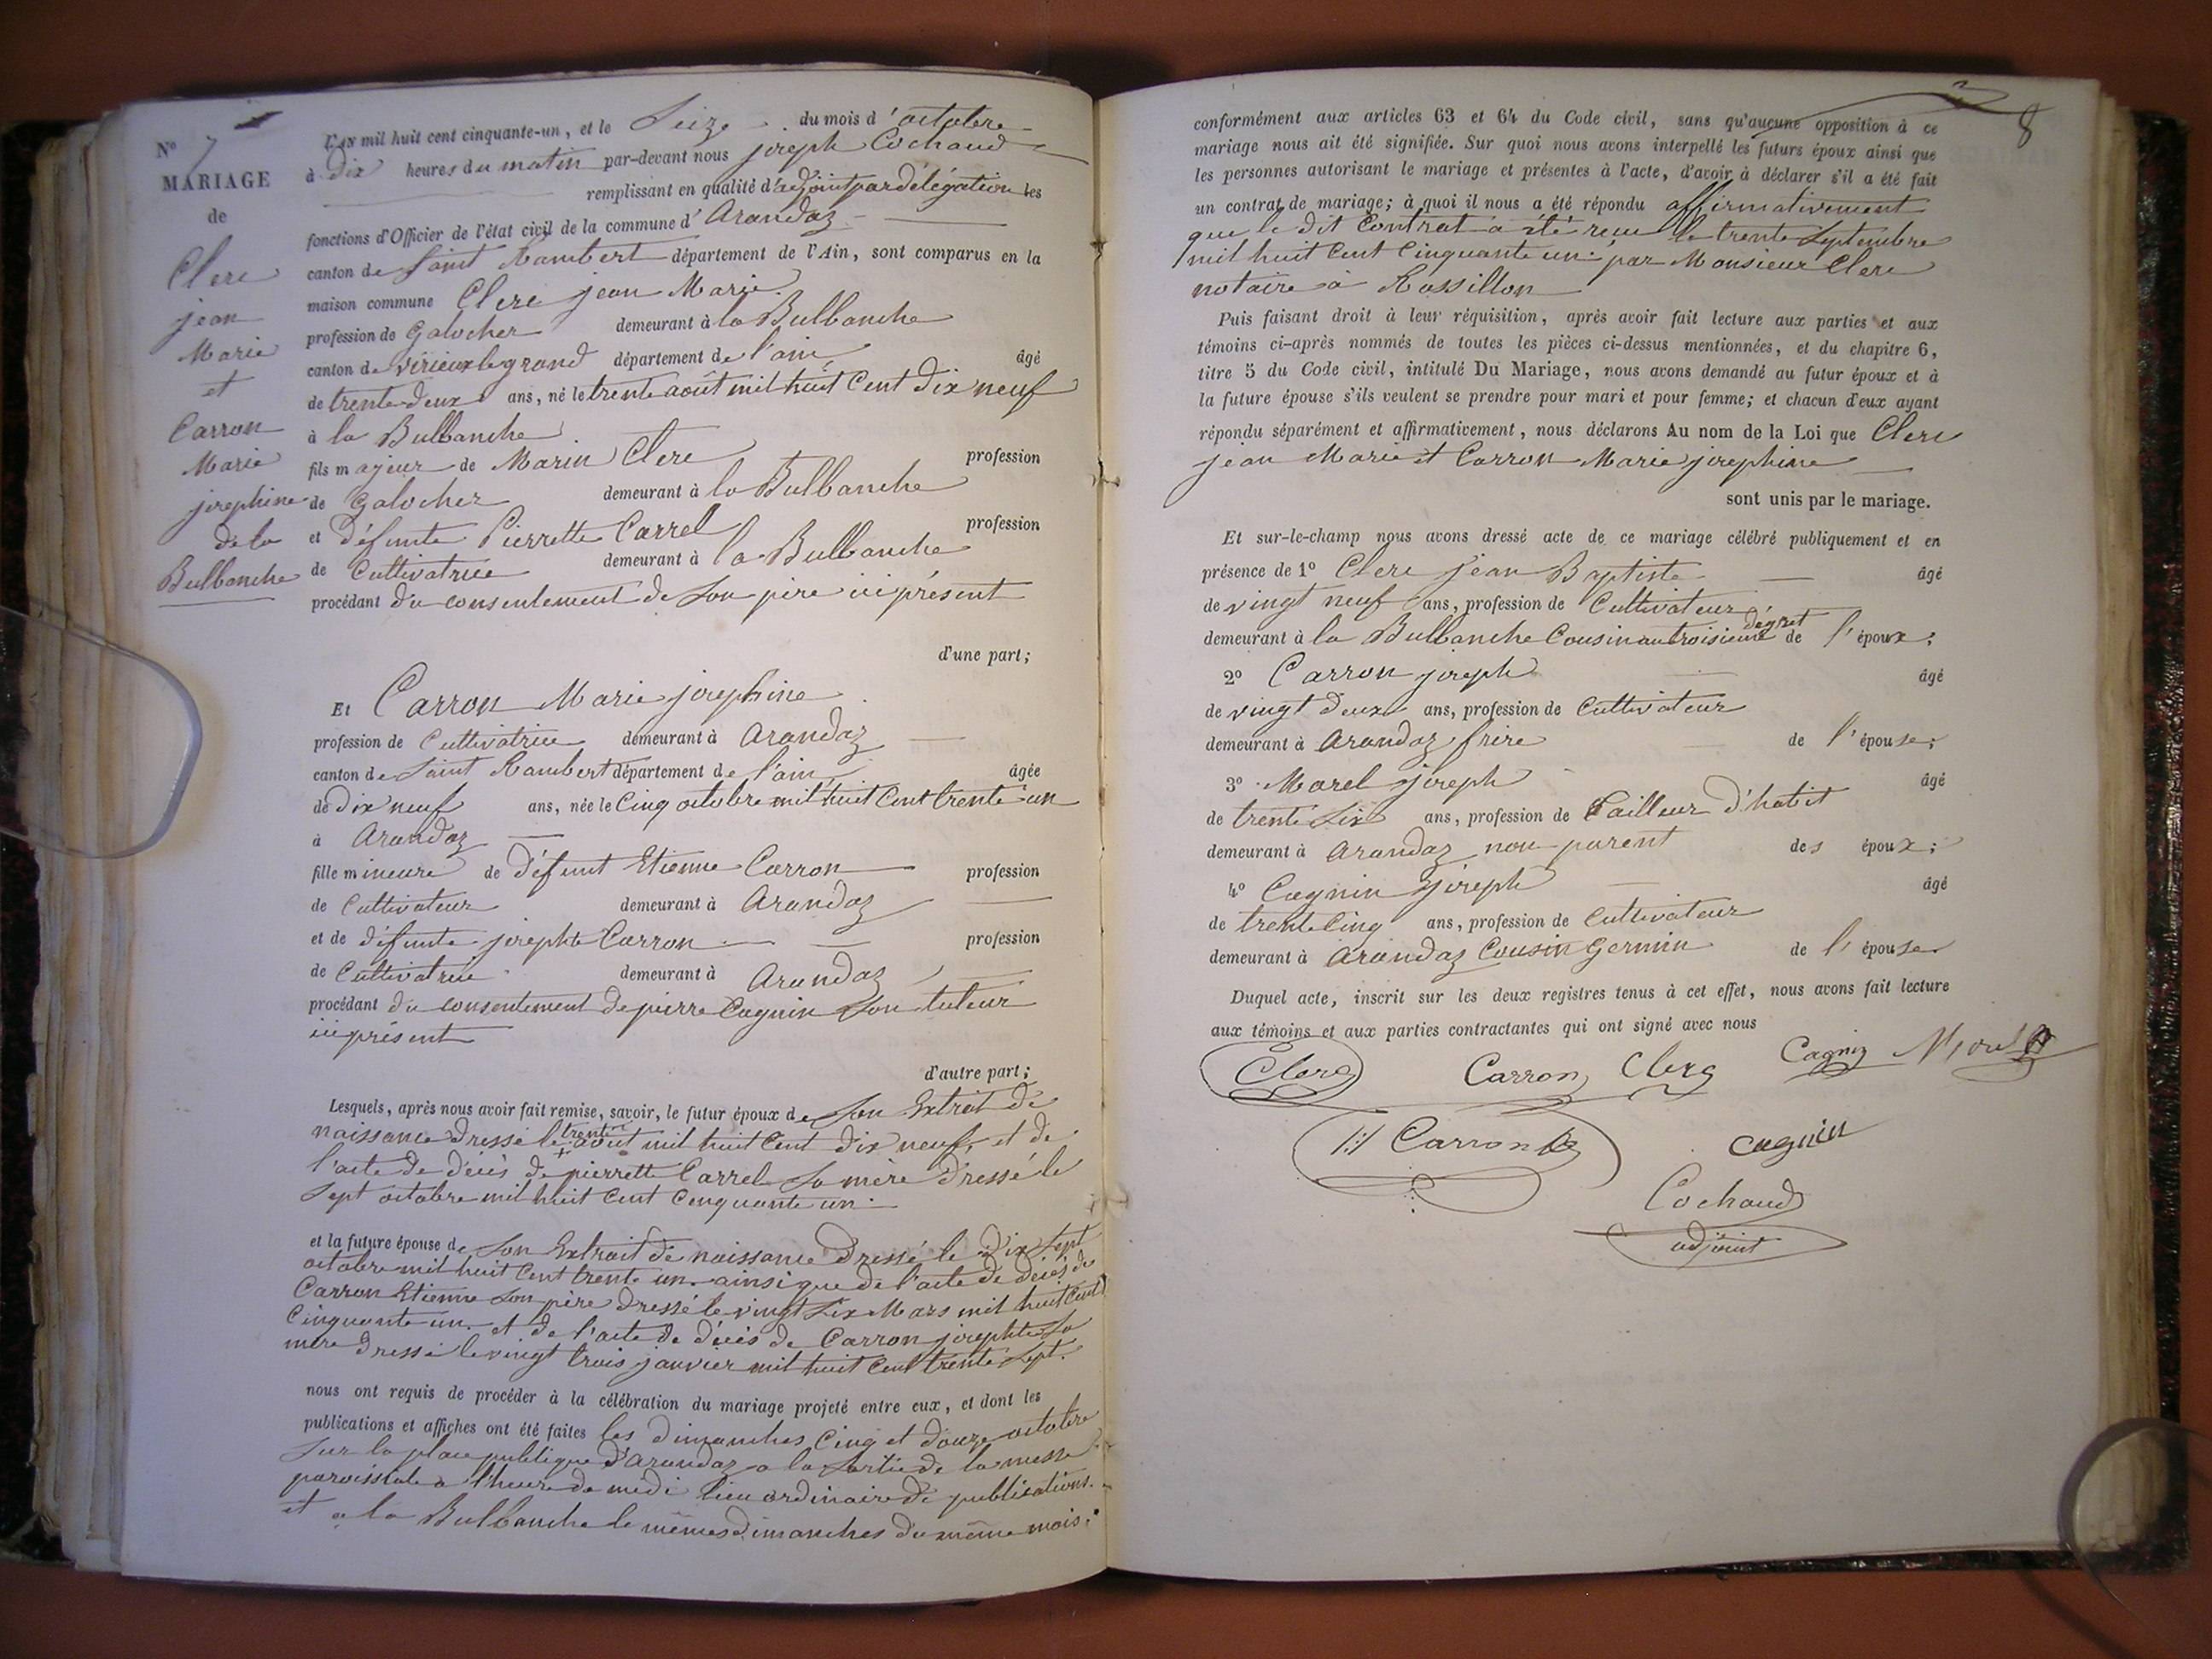 N° 7
MARIAGE
de
Clerc
jean
Marie
et
Carron
Marie
josephine
de la
Bulbanche
L'AN mil huit cent cinquante-un, et le Seize du mois d'octobre
à dix heures du matin par-devant nous joseph Cochaud
remplissant en qualité d'adjoint par délégation les
fonctions d'Officier de l'état civil de la commune d'Arandaz
canton de Saint Rambert département de l'Ain, sont comparus en la
maison commune Clerc jean Marie
profession de Galocher demeurant à la Bulbanche
canton de virieux le grand département de l'ain âgé
de trente-deux ans, né le trente août mil huit Cent dix neuf
à la Bulbanche
fils majeur de Marin Clerc profession
de Galocher demeurant à la Bulbanche
et défunte Pierrette Carrel profession
de Cultivatrice demeurant à la Bulbanche
procédant du consentement de son père ici présent
d'une part;
Et Carron Marie josephine
profession de Cultivatrice demeurant à Arandaz
canton de Saint Rambert département de l'ain âgée
de dix neuf ans, née le Cinq octobre mil huit Cent trente un
à Arandaz
fille mineure de défunt Etienne Carron profession
de Cultivateur demeurant à Arandaz
et de défunte josephte Carron profession
de Cultivatrice demeurant à Arandaz
procédant du consentement de pierre Cagnin son tuteur
ici présent
d'autre part;
Lesquels, après nous avoir fait remise, savoir, le futur époux de son Extrait de
naissance dressé le trente août mil huit Cent dix neuf, et de
l'acte de décès de pierrette Carrel sa mère dressé le
sept octobre mil huit Cent Cinquante un
et la future épouse de son Extrait de naissance dressé le dix sept
octobre mil huit Cent trente un. ainsi que de l'acte de décès de
Carron Etienne son père dressé le vingt six Mars mil huit Cent
Cinquante un. et de l'acte de décès de Carron josephte sa
mère dressé le vingt trois janvier mil huit Cent trente sept.
nous ont requis de procéder à la célébration du mariage projeté entre eux, et dont les
publications et affiches ont été faites les dimanches Cinq et douze octobre
sur la place publique d'Arandaz a la sortie de la messe
paroissiale a l'heure de midi lieu ordinaire de publications.
et a la Bulbanche le mêmes dimanches du même mois.
8
conformément aux articles 63 et 64 du Code civil, sans qu'aucune opposition à ce
mariage nous ait été signifiée. Sur quoi nous avons interpellé les futurs époux ainsi que
les personnes autorisant le mariage et présentes à l'acte, d'avoir à déclarer s'il a été fait
un contrat de mariage; à quoi il nous a été répondu affirmativement
que le dit Contrat a été reçu le trente Septembre
mil huit Cent Cinquante un. par Monsieur Clerc
notaire à Rossillon
Puis faisant droit à leur réquisition, après avoir fait lecture aux parties et aux
témoins ci-après nommés de toutes les pièces ci-dessus mentionnées, et du chapitre 6,
titre 5 du Code civil, intitulé DU MARIAGE, nous avons demandé au futur époux et à
la future épouse s'ils veulent se prendre pour mari et pour femme; et chacun d'eux ayant
répondu séparément et affirmativement, nous déclarons AU NOM DE LA LOI que Clerc
jean Marie et Carron Marie josephine
sont unis par le mariage.
Et sur-le-champ nous avons dressé acte de ce mariage célébré publiquement et en
présence de 1° Clerc jean Baptiste âgé
de vingt neuf ans, profession de Cultivateur
demeurant à la Bulbanche Cousin au troisieme dégret de l'époux;
2° Carron joseph âgé
de vingt deux ans, profession de Cultivateur
demeurant à Arandaz frère de l'épouse;
3° Morel joseph âgé
de trente six ans, profession de Tailleur d'habit
demeurant à Arandaz non parent des époux;
4° Cagnin joseph âgé
de trente Cinq ans, profession de Cultivateur
demeurant à Arandaz Cousin Germin de l'épouse
Duquel acte, inscrit sur les deux registres tenus à cet effet, nous avons fait lecture
aux témoins et aux parties contractantes qui ont signé avec nous
Clerc Carron Clerc Cagnin Morel
Carron
Cagnin
Cochaud
adjoint